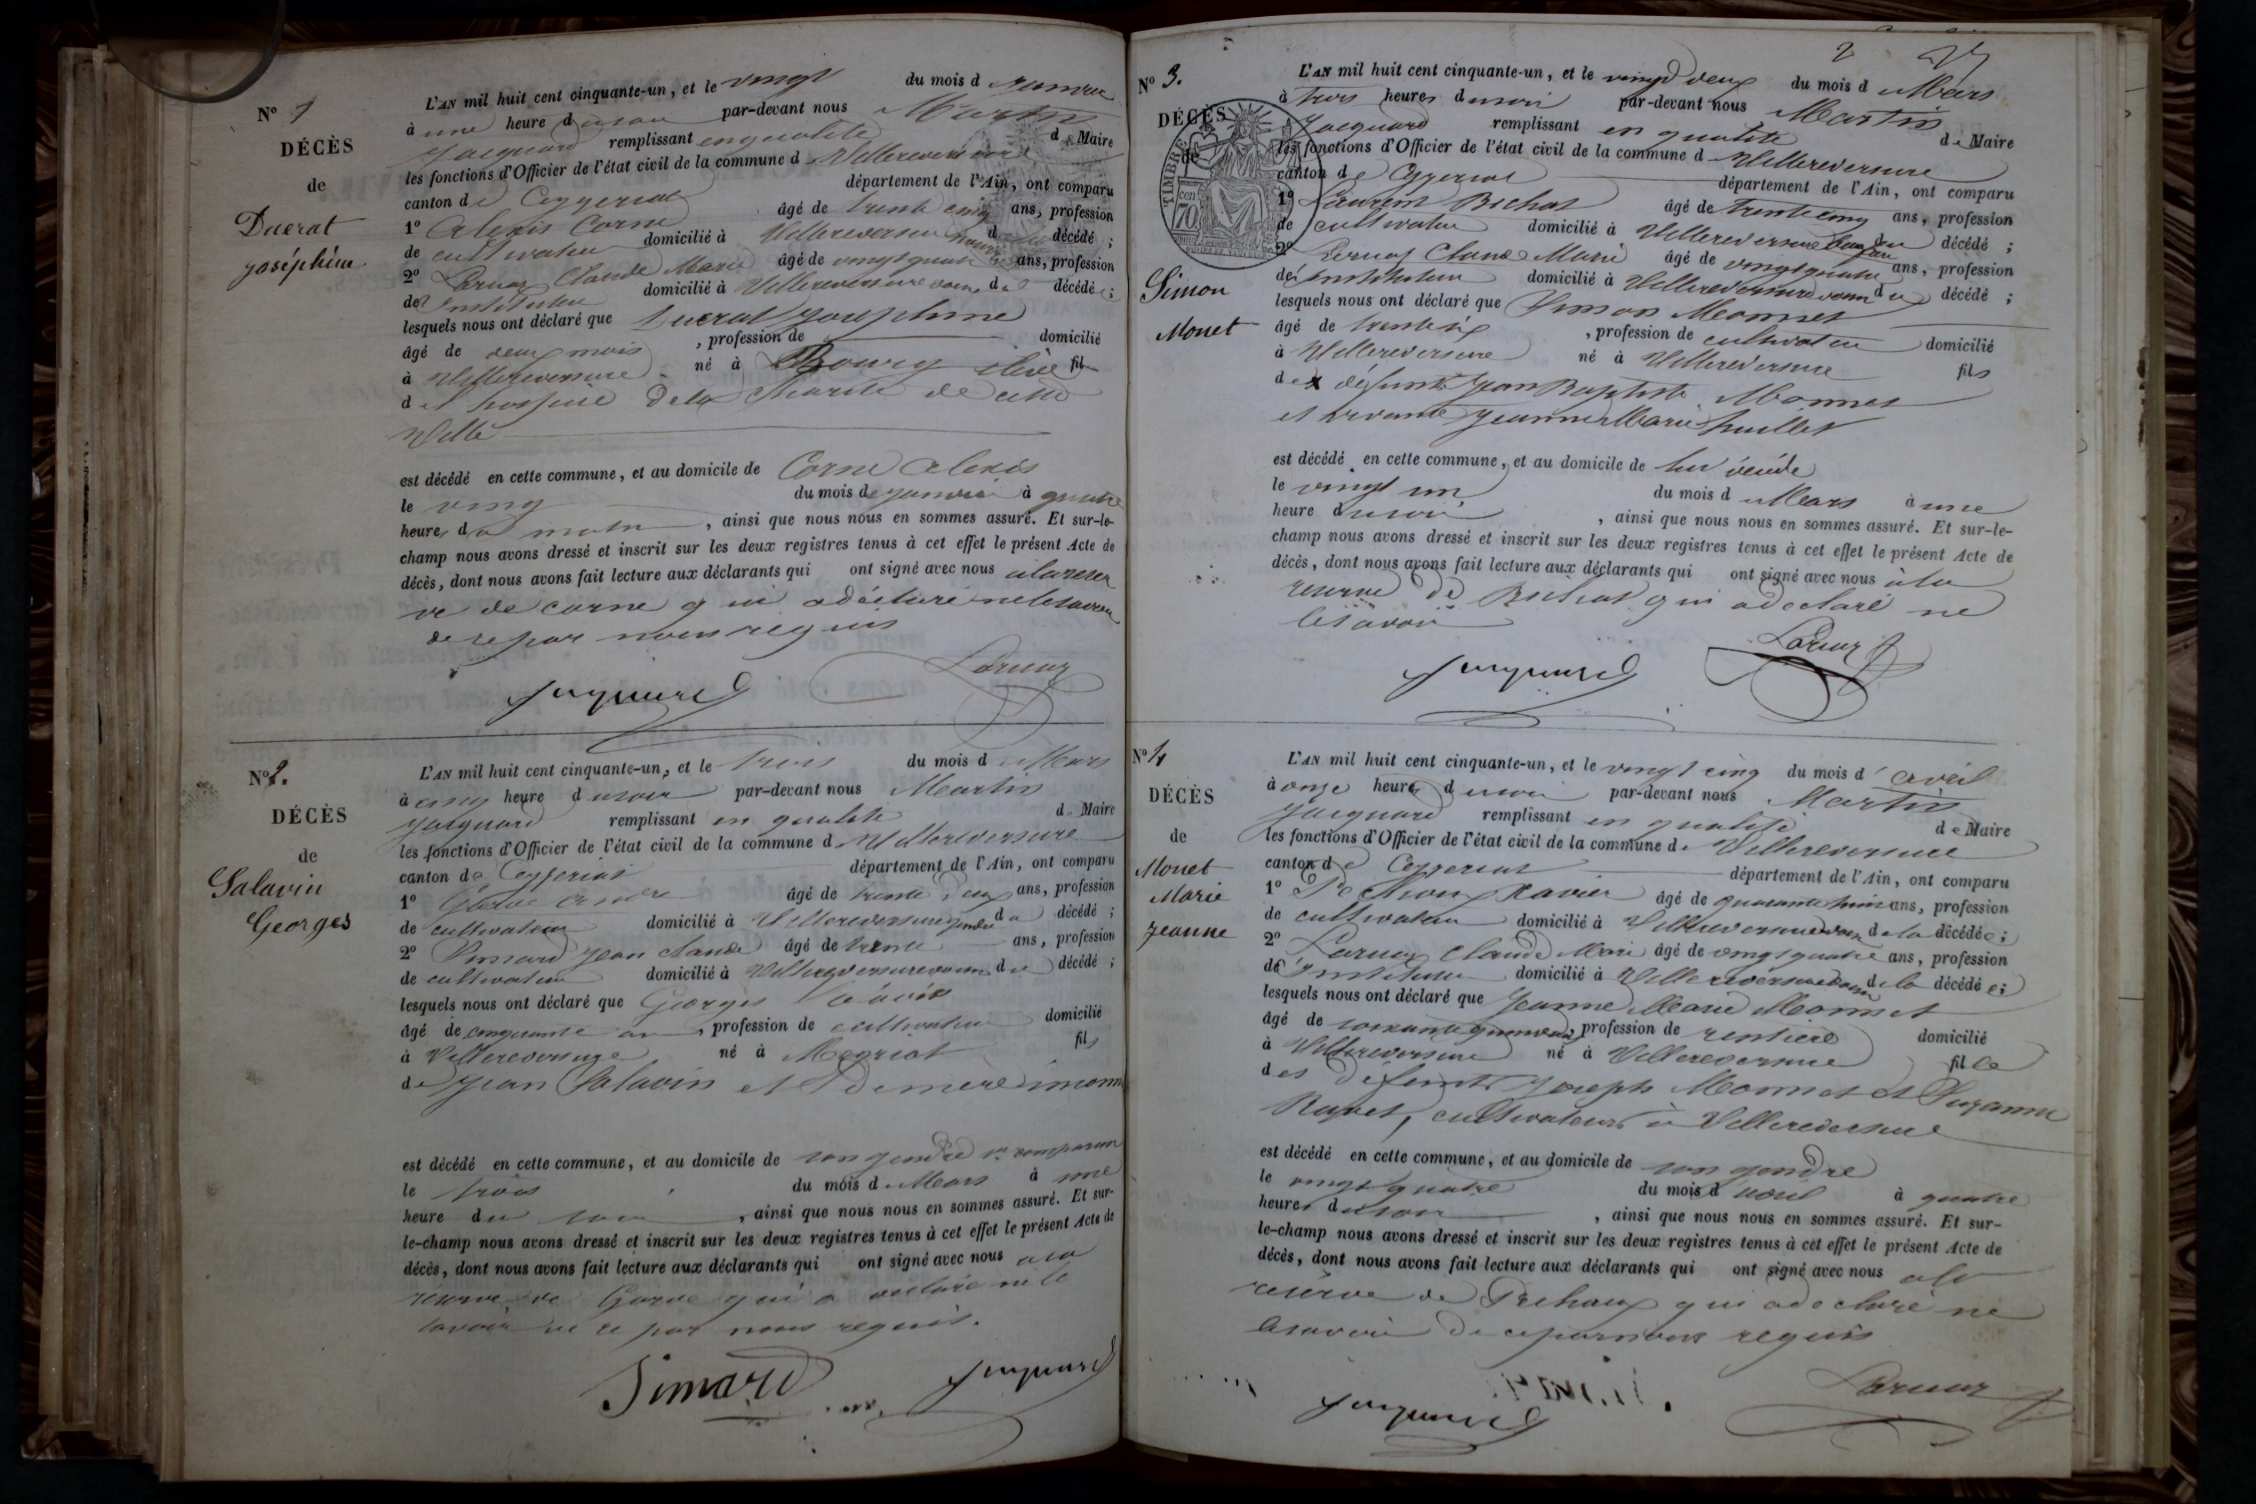 Nº 1
DÉCÈS
de
Ducrat
joséphine
L'AN mil huit cent cinquante-un, et le vingt du mois d janvier
à une heure du soir par-devant nous Martin
Jacquard remplissant en qualité de Maire
les fonctions d'Officier de l'état civil de la commune d Villereversure
canton de Ceyzeriat département de l'Ain, ont comparu
1º Alexis Corne âgé de trente cinq ans, profession
de cultivateur domicilié à Villereversure décédé ;
2º Larnaz Claude Marie âgé de vingt quatre ans, profession
de Instituteur domicilié à Villereversure voisin de décédé ;
lesquels nous ont déclaré que Ducrat Josephine
âgé de deux mois, profession de domicilié
à Villereversure né à Bourg élève fil
de l'hospice de la Charité de cette
Ville
est décédé en cette commune, et au domicile de Corne Alexis
le vingt du mois de janvier à quatre
heures du matin, ainsi que nous nous en sommes assuré. Et sur-le-
champ nous avons dressé et inscrit sur les deux registres tenus à cet effet le présent Acte de
décès, dont nous avons fait lecture aux déclarants qui ont signé avec nous à la reser
ve de corne qui a déclaré ne le savoir
de ce par nous requis
Jacquard Larnaz
Nº 2.
DÉCÈS
de
Salavin
Georges
L'AN mil huit cent cinquante-un, et le trois du mois d Mars
à cinq heure du soir par-devant nous Martin
Jacquard remplissant en qualité de Maire
les fonctions d'Officier de l'état civil de la commune d Villereversure
canton de Ceyzeriat département de l'Ain, ont comparu
1º âgé de trente deux ans, profession
de cultivateur domicilié à Villereversure gendre du décédé ;
2º jean claude âgé de trente ans, profession
de cultivateur domicilié à Villereversure voisin du décédé ;
lesquels nous ont déclaré que Georges Salavin
âgé de cinquante ans, profession de cultivateur domicilié
à Villereversure né à Meyriat fils
de Jean Salavin et de mère inconnu
est décédé en cette commune, et au domicile de son gendre 1er comparan
le trois du mois d Mars à une
heure du soir, ainsi que nous nous en sommes assuré. Et sur-
le-champ nous avons dressé et inscrit sur les deux registres tenus à cet effet le présent Acte de
décès, dont nous avons fait lecture aux déclarants qui ont signé avec nous a la
réserve de qui a déclaré ne le
savoir de ce par nous requis.
Simard Jacquard
2 27
Nº 3.
DÉCÈS
de
TIMBRE
70
Simon
Monet
L'AN mil huit cent cinquante-un, et le vingt deux du mois d Mars
à trois heures du soir par-devant nous Martin
Jacquard remplissant en qualité de Maire
les fonctions d'Officier de l'état civil de la commune d Villereversure
canton de Ceyzeriat département de l'Ain, ont comparu
1º Laurent Bichat âgé de trente cinq ans, profession
de cultivateur domicilié à Villereversure du décédé ;
2º Larnaz Claude Marie âgé de vingt quatre ans, profession
de Instituteur domicilié à Villereversure voisin du décédé ;
lesquels nous ont déclaré que Simon Monnet
âgé de trente six, profession de cultivateur domicilié
à Villereversure né à Villereversure fils
de défunt Jean Baptiste Monnet
et vivante Jeanne Marie
est décédé en cette commune, et au domicile de lui décédé
le vingt un du mois d Mars à une
heure du soir, ainsi que nous nous en sommes assuré. Et sur-le-
champ nous avons dressé et inscrit sur les deux registres tenus à cet effet le présent Acte de
décès, dont nous avons fait lecture aux déclarants qui ont signé avec nous à la
reserve de Bichat qui a déclaré ne
le savoir
Jacquard Larnaz
Nº 4
DÉCÈS
de
Monet
Marie
jeanne
L'AN mil huit cent cinquante-un, et le vingt cinq du mois d'avril
à onze heure du soir par-devant nous Martin
Jacquard remplissant en qualité de Maire
les fonctions d'Officier de l'état civil de la commune d. Villereversure
canton de Ceyzeriat département de l'Ain, ont comparu
1º Xavier âgé de quarante huit ans, profession
de cultivateur domicilié à Villereversure de la décédée ;
2º Larnaz Claude Marie âgé de vingt quatre ans, profession
de Instituteur domicilié à Villereversure voisin de la décédée ;
lesquels nous ont déclaré que Jeanne Marie Monnet
âgé de, profession de rentière domicilié
à Villereversure né à Villereversure fille
des défunts Joseph Monnet et Suzanne
Ravet, cultivateurs à Villereversure
est décédé en cette commune, et au domicile de son gendre
le vingt quatre du mois d'avril à quatre
heures du soir, ainsi que nous nous en sommes assuré. Et sur-
le-champ nous avons dressé et inscrit sur les deux registres tenus à cet effet le présent Acte de
décès, dont nous avons fait lecture aux déclarants qui ont signé avec nous a la
réserve de qui a déclaré ne
le savoir de ce par nous requis
Jacquard Larnaz